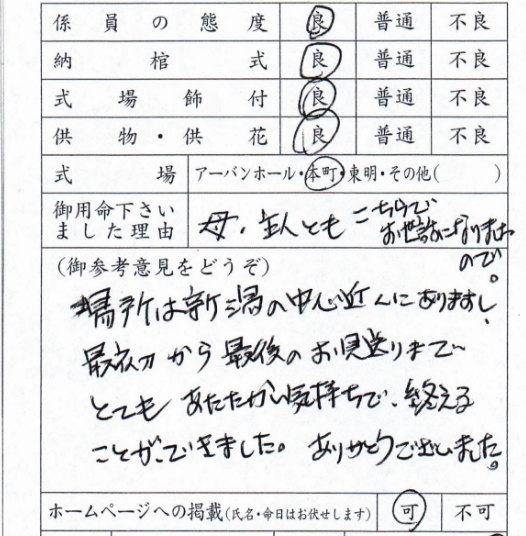 係員の態度 良 普通 不良
納棺式 良 普通 不良
式場飾付 良 普通 不良
供物・供花 良 普通 不良
式場 アーバンホール・本町・東明・その他( )
御用命下さい
ました理由
母、主人とも こちらで
お世話になりました
ので。
(御参考意見をどうぞ)
場所は新潟の中心近くにありますし、
最初から最後のお見送りまで
とても あたたかい気持ちで、終える
ことができました。ありがとうございました。
ホームページへの掲載(氏名・命日はお伏せします) 可 不可